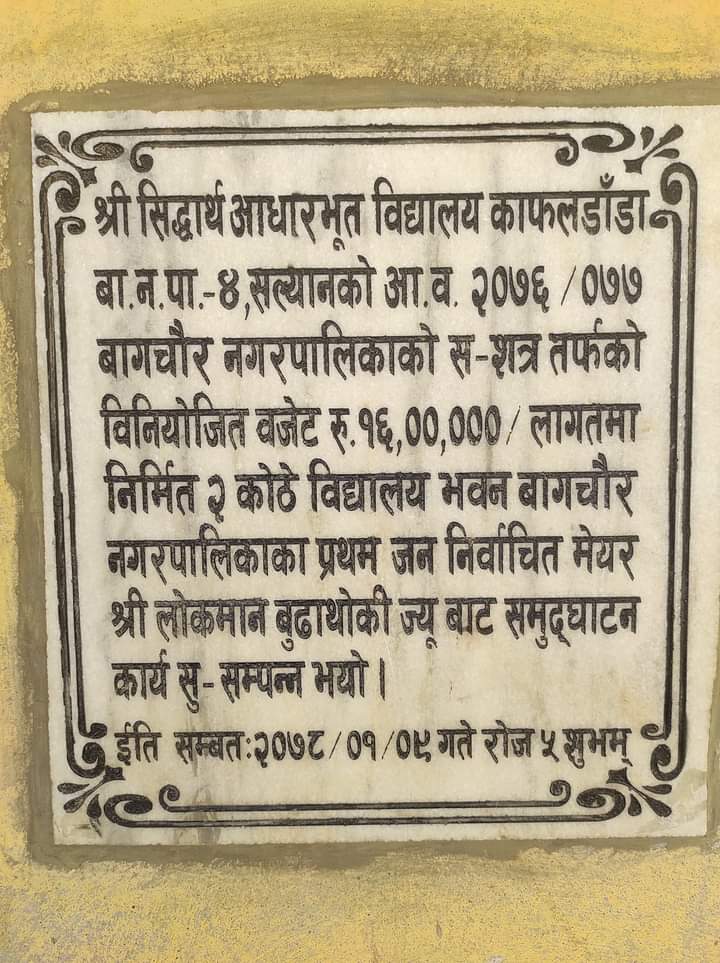 श्री सिद्धार्थ आधारभूत विद्यालय काफलडाँडा
बा.न.पा.-४,सल्यानको आ.व. २०७६ /०७७
बागचौर नगरपालिकाको स-शत्र तर्फको
विनियोजित वजेट रु.१६,००,०००/ लागतमा
निर्मित २ कोठे विद्यालय भवन बागचौर
नगरपालिकाका प्रथम जन निर्वाचित मेयर
श्री लोकमान बुढाथोकी ज्यू बाट समुद्घाटन
कार्य सु-सम्पन्न भयो।
ईति सम्बत:२०७८/०१/०९ गते रोज ५ शुभम्